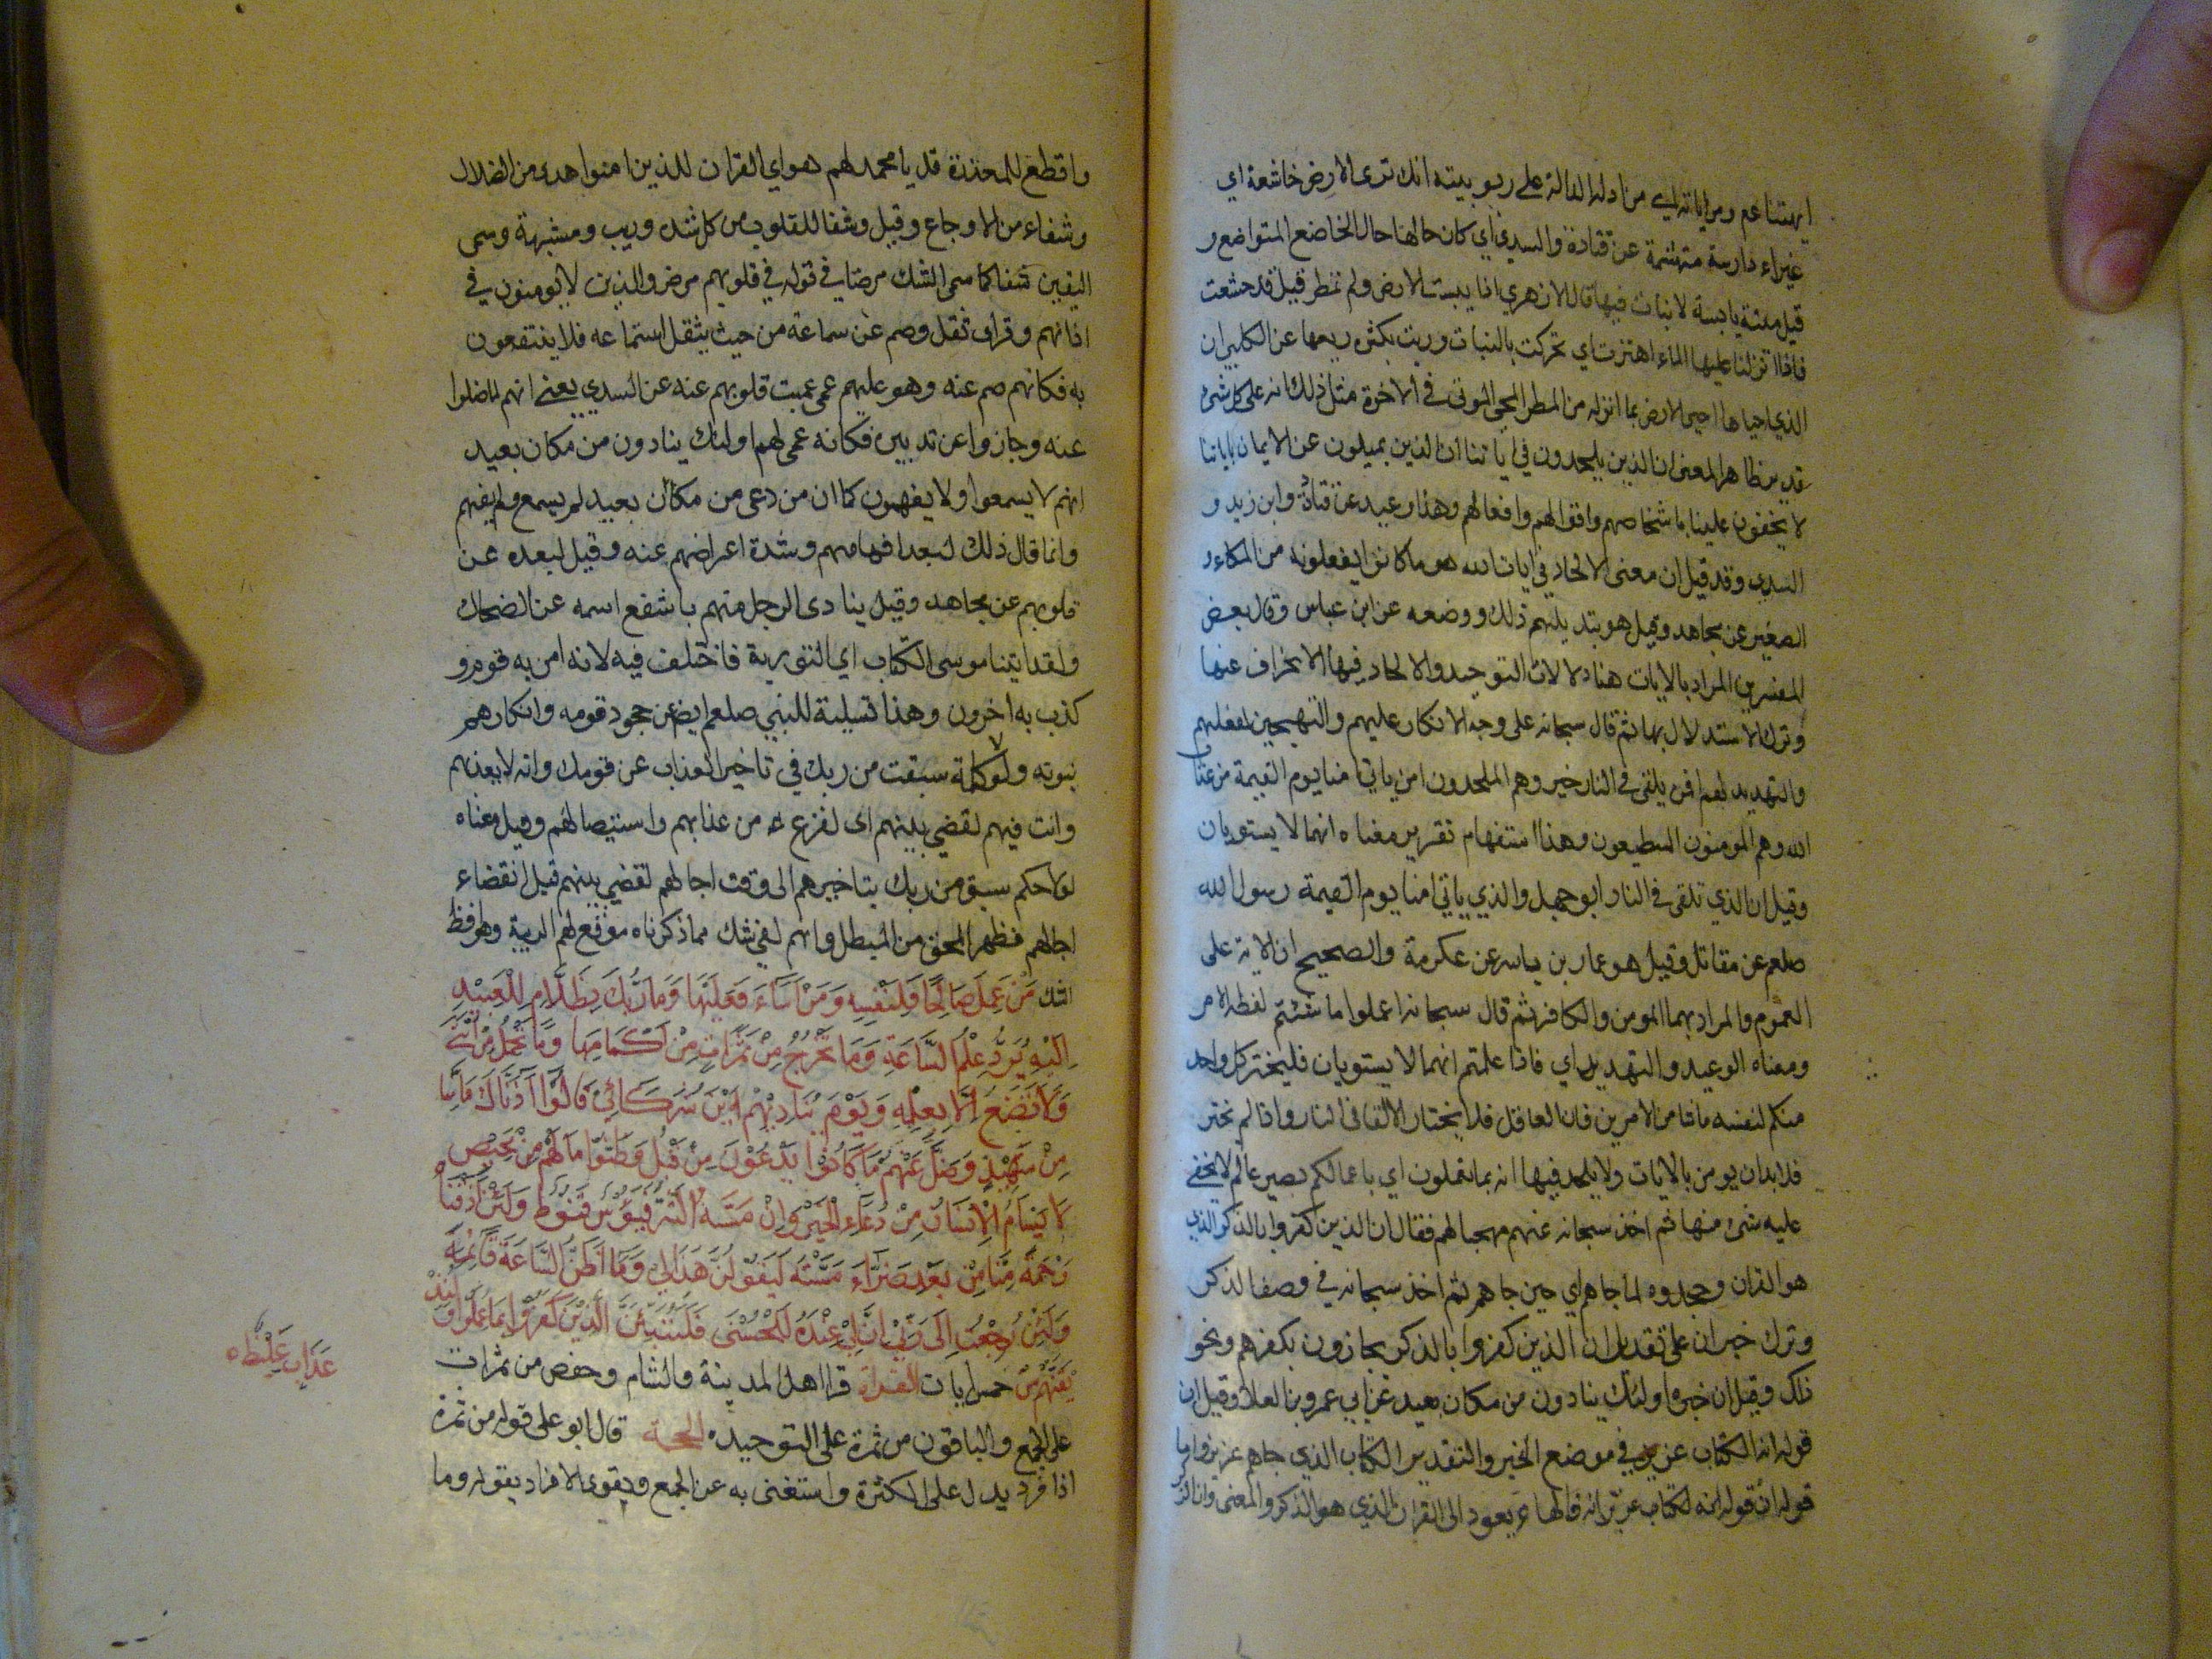 ايهتنا عم ومن اياته اي من ادلته الدالة على ربوبيته انك ترى الارض خاشعة اي
غبراء دارسة متهشمة عن قتادة والسدي اي كان حالها حال الخاضع المتواضع و
قيل ميتة يابسة لا نبات فيها قال الازهري اذا يبست الارض ولم تمطر قيل قد خشعت
فاذا انزلنا عليها الماء اهتزت اي تحركت بالنبات وربت بكثره ريعها عن الكلبي ان
الذي احياها احيى الارض بما انزله من المطر لمحي الموتى في الاخرة مثل ذلك انه على كل شئ
قدير ظاهر المعنى ان الذين يلحدون في اياتنا ان الذين يميلون عن الايمان باياتنا
لا يخفون علينا باشخاصهم واقوالهم وافعالهم وهذا وعيد عن قتادة وابن زيد و
السدي وقد قيل ان معنى الالحاد في ايات الله هو ما كانوا يفعلونه من المكاء و
الصغير عن مجاهد وقيل هو تبديلهم ذلك ووضعه عن ابن عباس وقال بعض
المفسرين المراد بالايات هنا دلالات التوحيد والالحاد فيها الانحراف عنها
وترك الاستدلال بها ثم قال سبحانه على وجه الانكار عليهم والتهجين لفعلهم
والتهديد لهم افمن يلقى في النار خير وهم الملحدون امن ياتي امنا يوم القيمة من عذاب
الله وهم المومنون المطيعون وهذا استفهام تقرير معناه انهما لا يستويان
وقيل ان الذي تلقى في النار ابو جهل والذي ياتي امنا يوم القيمة رسول الله
صلعم عن مقاتل وقيل هو عمار بن ياسر عن عكرمة والصحيح ان الاية على
العموم والمراد بهما المومن والكافر ثم قال سبحانه اعملوا ما شئتم لفظه الامر
ومعناه الوعيد والتهديد اي فاذا علمتم انهما لا يستويان فليختر كل واحد
منكم لنفسه ما فا من الامرين فان العاقل فلا يختار الالقا في النار واذا لم يختر
فلا بد ان يومن بالايات ولا يلحد فيها انه بما تعملون اي باعمالكم بصير عالم لا يخفى
عليه شئ منها ثم اخذ سبحانه عنهم مهجبا لهم فقال ان الذين كفروا بالذكر الذي
هو القران وجحدوه لما جاهم اي حين جاهم ثم اخذ سبحانه في وصف الذكر
وترك خبر ان على تقدير ان الذين كفروا بالذكر يجازون بكفرهم ونحو
ذلك وقيل ان خبره اولئك ينادون من مكان بعيد عن ابي عمرو بن العلا وقيل ان
قوله انه لكتاب عزيز في موضع الخبر والتقدير الكتاب الذي جاهم عزيز واما
قوله ان قوله انه لكتاب عزيز انه فالهاء يعود الى القران الذي هو الذكر والمعنى وان الذكر
واقطع للمعذرة قل يا محمد لهم هو اي القران للذين امنوا هدى من الضلال
وشفاء من الاوجاع وقيل وشفا للقلوب من كل شك وريب ومشبهة وسمى
اليقين شفا كما سمى الشك مرضا في قوله في قلوبهم مرض والذين لا يومنون في
اذانهم وقر اي ثقل وصم عن سماعة من حيث يثقل استماعه فلا ينتفعون
به فكانهم صم عنه وهو عليهم عمى عميت قلوبهم عنه عن السدي يعني انهم لما ضلوا
عنه وجازوا عن تدبيره فكانه عمى لهم اولئك ينادون من مكان بعيد
انهم لا يسمعوا ولا يفهمون كما ان من دعى من مكان بعيد لم يسمع ولم يفهم
وانما قال ذلك لبعد افهامهم وشدة اعراضهم عنه وقيل لبعده عن
قلوبهم عن مجاهد وقيل ينادى الرجل منهم باشفع اسمه عن الضحاك
ولقد اتينا موسى الكتاب اي التورية فاختلف فيه لانه امن به قوم و
كذب به اخرون وهذا تسلية للنبي صلعم ايض عن جحود قومه وانكارهم
نبوته ولولا كلمة سبقت من ربك في تاخير العذاب عن قومك وانه لا يعذبهم
وانت فيهم لقضي بينهم اى لفزع من عذابهم واستيصالهم وقيل معناه
لولا حكم سبق من ربك بتاخيرهم الى وقت اجالهم لقضي بينهم قبل انقضاء
اجالهم فظهر المحق من المبطل وانهم لفي شك مما ذكرناه موقع لهم الريبة وهو افظ
الشك مَنْ عَمِلَ صَالِحًا فَلِنَفْسِهِ وَمَنْ اَسَاءَ فَعَلَيْهَا وَمَا رَبُّكَ بِظَلَّامٍ لِلْعَبِيْدِ
اِلَيْهِ يُرَدُّ عِلْمُ السَّاعَةِ وَمَا تَخْرُجُ مِنْ ثَمَرَاتٍ مِنْ اَكْمَامِهَا وَمَا تَحْمِلُ مِنْ اُنْثَى
وَلَا تَضَعُ اِلَّا بِعِلْمِهِ وَيَوْمَ يُنَادِيْهِمْ اَيْنَ شُرَكَائِي قَالُوْا آذَنَّاكَ مَا مِنَّا
مِنْ شَهِيْدٍ وَضَلَّ عَنْهُمْ مَا كَانُوْا يَدْعُوْنَ مِنْ قَبْلُ وَظَنُّوا مَا لَهُمْ مِنْ مَحِيْصٍ
لَا يَسْاَمُ الْاِنْسَانُ مِنْ دُعَاءِ الْخَيْرِ وَاِنْ مَسَّهُ الشَّرُّ فَيَؤُسٌ قَنُوْطٌ وَلَئِنْ اَذَقْنَاهُ
رَحْمَةً مِنَّا مِنْ بَعْدِ ضَرَّاءَ مَسَّتْهُ لَيَقُوْلَنَّ هَذَا لِي وَمَا اَظُنُّ السَّاعَةَ قَائِمَةً
وَلَئِنْ رُجِعْتُ اِلَى رَبِّي اِنَّ لِي عِنْدَهُ لَلْحُسْنَى فَلَنُنَبِّئَنَّ الَّذِيْنَ كَفَرُوا بِمَا عَمِلُوا وَلَنُذِ
يْقَنَّهُمْ مِنْ خمس ايات القراة قرا اهل المدينة والشام وحفص من ثمرات
على الجمع والباقون من ثمرة على التوحيد الحجة قال ابو على قوله من ثمرة
اذا فرد يدل على الكثرة واستغنى به عن الجمع ويقوى الافراد بقوله وما
عَذَابٍ غَلِيْظٍ